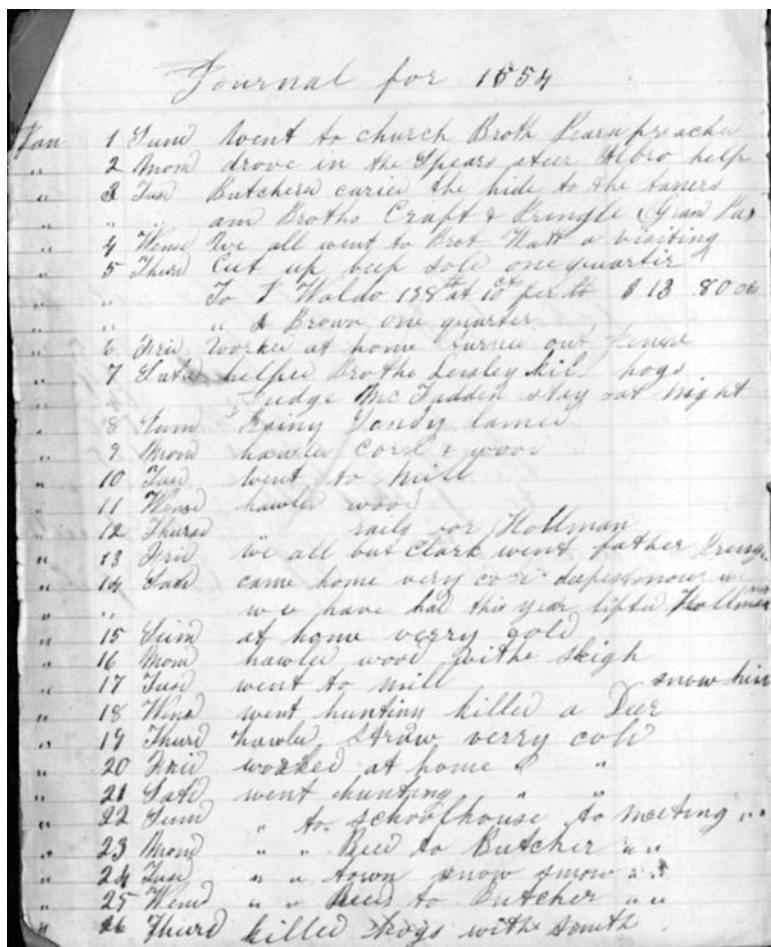 Journal for 1854
Jan 1 Sund Went to church Broth preached
" 2 Mond drove in the Spears steer Albro help
" 3 Tusd Butchered caried the hide to the taners
" " and Broths Craft & Pringle (Gran Pa)
" 4 Wensd We all went to Brot Watt a visiting
" 5 Thurd Cut up beep sole one quartir
" To F Waldo 138 lb at 10 ct per lb $13.80 cts
" " Brown one quarter
" 6 Frid Worked at home turned out
" 7 Satd helped Broths Leisley kill hogs
" Judge McFadden stay sat night
" 8 Sund Rainy lamed
" 9 Mond hawled corn & wood
" 10 Tusd went to mill
" 11 Wensd hawled wood
" 12 Thursd " rails vor Hollman
" 13 Frid We all but Clark went father Pringl
" 14 Satd came home very cold deepest snow we
" " we have had this year lifted Hollman
" 15 Sund at home verry cold
" 16 Mond hawled wood withe sleigh
" 17 Tusd went to mill snow
" 18 Wensd went hunting killed a Deer
" 19 Thurd hawld straw verry cold
" 20 Frid worked at home " "
" 21 Satd went hunting " "
" 22 Sund " to schoolhouse to meeting " "
" 23 Mond " " Reed to Butcher " "
" 24 Tusd " " town snow smow " "
" 25 Wensd " " Reeds to Butcher " "
" 26 Thurd killed hogs with Smith